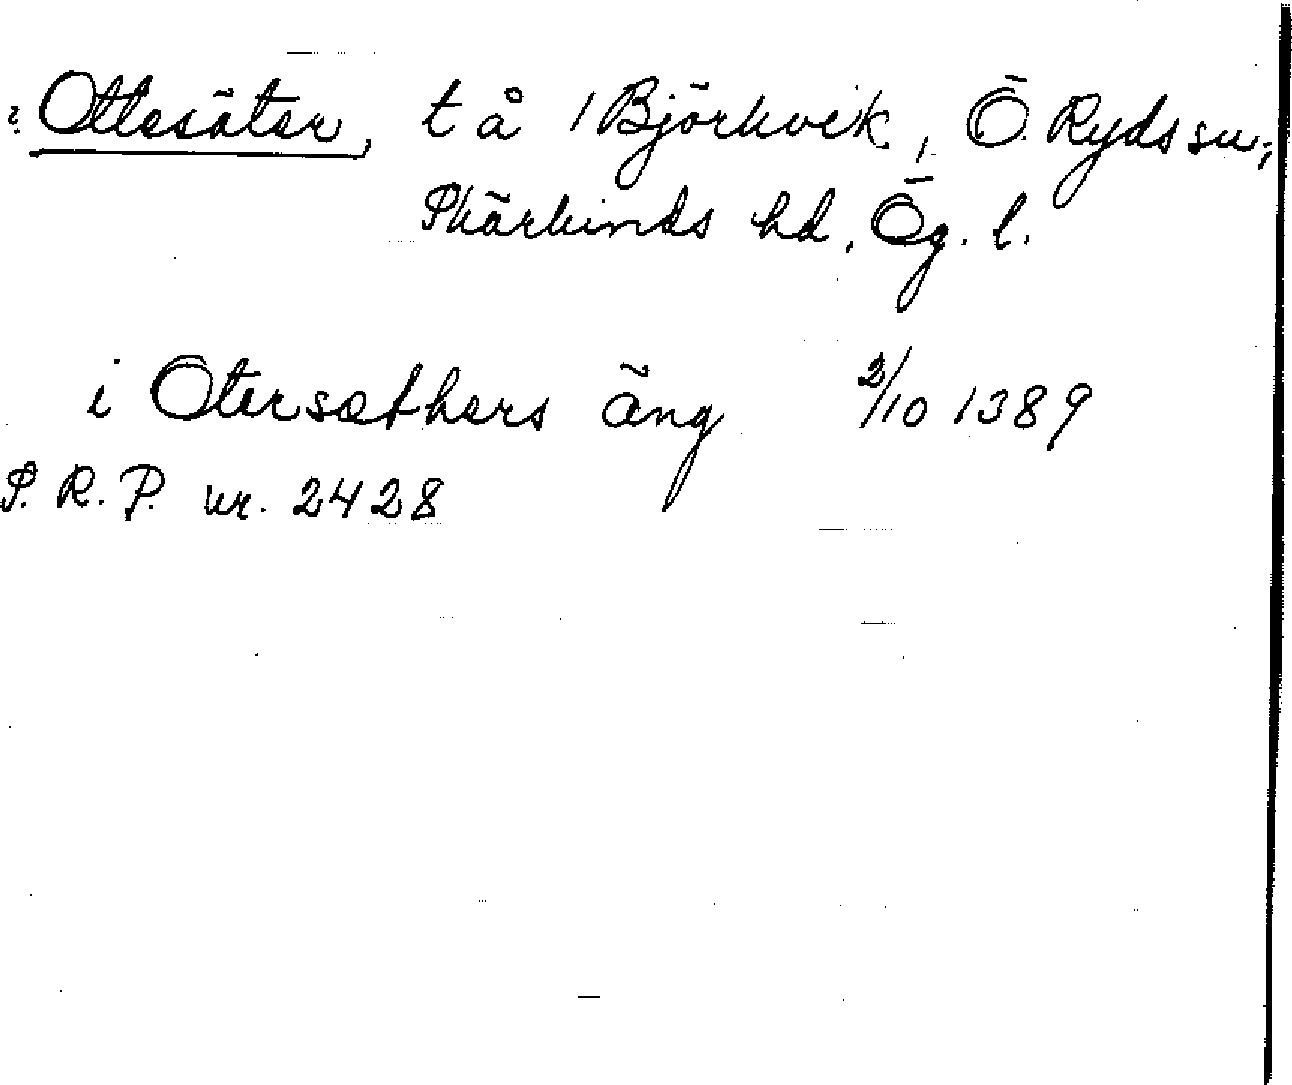 ? Ottesäter, t å / Björkvik, Ö. Ryds sn,
Skärkinds hd, Ög. l.
i Otersæthers äng 2/10 1389
S. R. P. nr. 2428